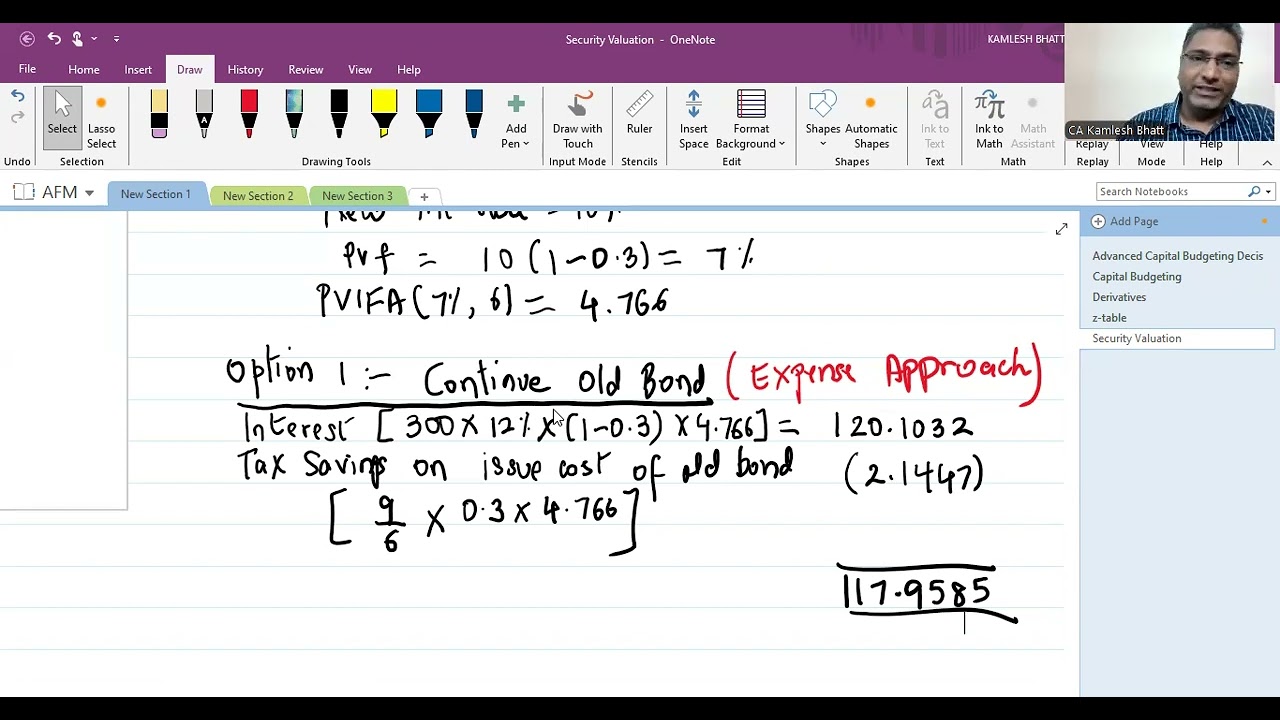 Security Valuation - OneNote
KAMLESH BHATT
File Home Insert Draw History Review View Help
Select
Lasso Select
Add Pen
Draw with Touch
Ruler
Insert Space
Format Background
Shapes
Automatic Shapes
Ink to Text
Ink to Math
Math Assistant
Replay
View
Help
CA Kamlesh Bhatt
Undo Selection Drawing Tools Input Mode Stencils Edit Shapes Text Math Replay Mode Help
AFM
New Section 1
New Section 2
New Section 3
Search Notebooks
Add Page
Advanced Capital Budgeting Decis
Capital Budgeting
Derivatives
z-table
Security Valuation
Pvf = 10 (1-0.3) = 7%
PVIFA(7%, 6) = 4.766
Option 1 :- Continue Old Bond (Expense Approach)
Interest [300 × 12% × (1-0.3) × 4.766] = 120.1032
Tax Savings on issue cost of old bond (2.1447)
[9/6 × 0.3 × 4.766]
117.9585